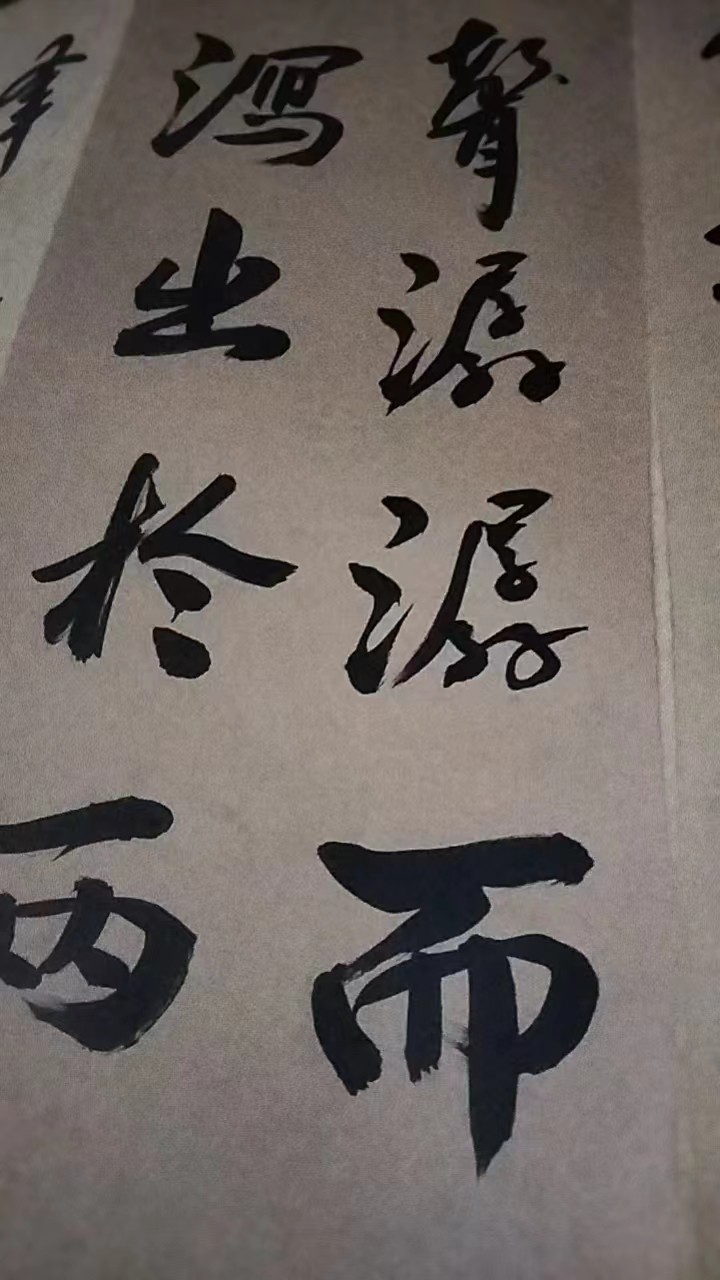 聲潺潺而
瀉出於兩
峰